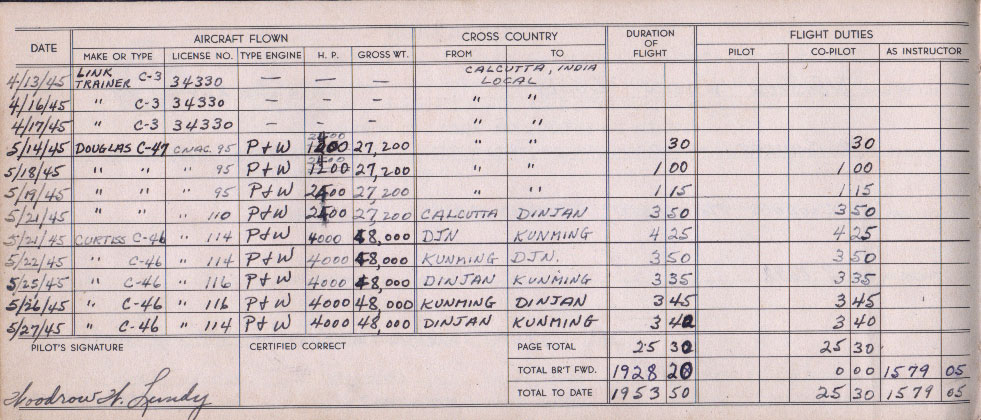 DATE AIRCRAFT FLOWN CROSS COUNTRY DURATION OF FLIGHT FLIGHT DUTIES
MAKE OR TYPE LICENSE NO. TYPE ENGINE H. P. GROSS WT. FROM TO PILOT CO-PILOT AS INSTRUCTOR
4/13/45 LINK TRAINER C-3 34330 — — — CALCUTTA, INDIA LOCAL
4/16/45 " C-3 34330 – – – " "
4/17/45 " C-3 34330 – – – " "
5/14/45 DOUGLAS C-47 CNAC. 95 P+W 1200 27,200 " " 30 30
5/18/45 " " " 95 P+W 1200 27,200 " " 1 00 1 00
5/19/45 " " " 95 P+W 2400 27,200 " " 1 15 1 15
5/21/45 " " " 110 P+W 2400 27,200 CALCUTTA DINJAN 3 50 3 50
5/21/45 CURTISS C-46 " 114 P+W 4000 48,000 DJN KUNMING 4 25 4 25
5/22/45 " C-46 " 114 P+W 4000 48,000 KUNMING DJN. 3 50 3 50
5/25/45 " C-46 " 116 P+W 4000 48,000 DINJAN KUNMING 3 35 3 35
5/26/45 " C-46 " 116 P+W 4000 48,000 KUNMING DINJAN 3 45 3 45
5/27/45 " C-46 " 114 P+W 4000 48,000 DINJAN KUNMING 3 40 3 40
PILOT'S SIGNATURE CERTIFIED CORRECT PAGE TOTAL 25 30 25 30
TOTAL BR'T FWD. 1928 20 0 00 1579 05
Woodrow W. Lundy TOTAL TO DATE 1953 50 25 30 1579 05